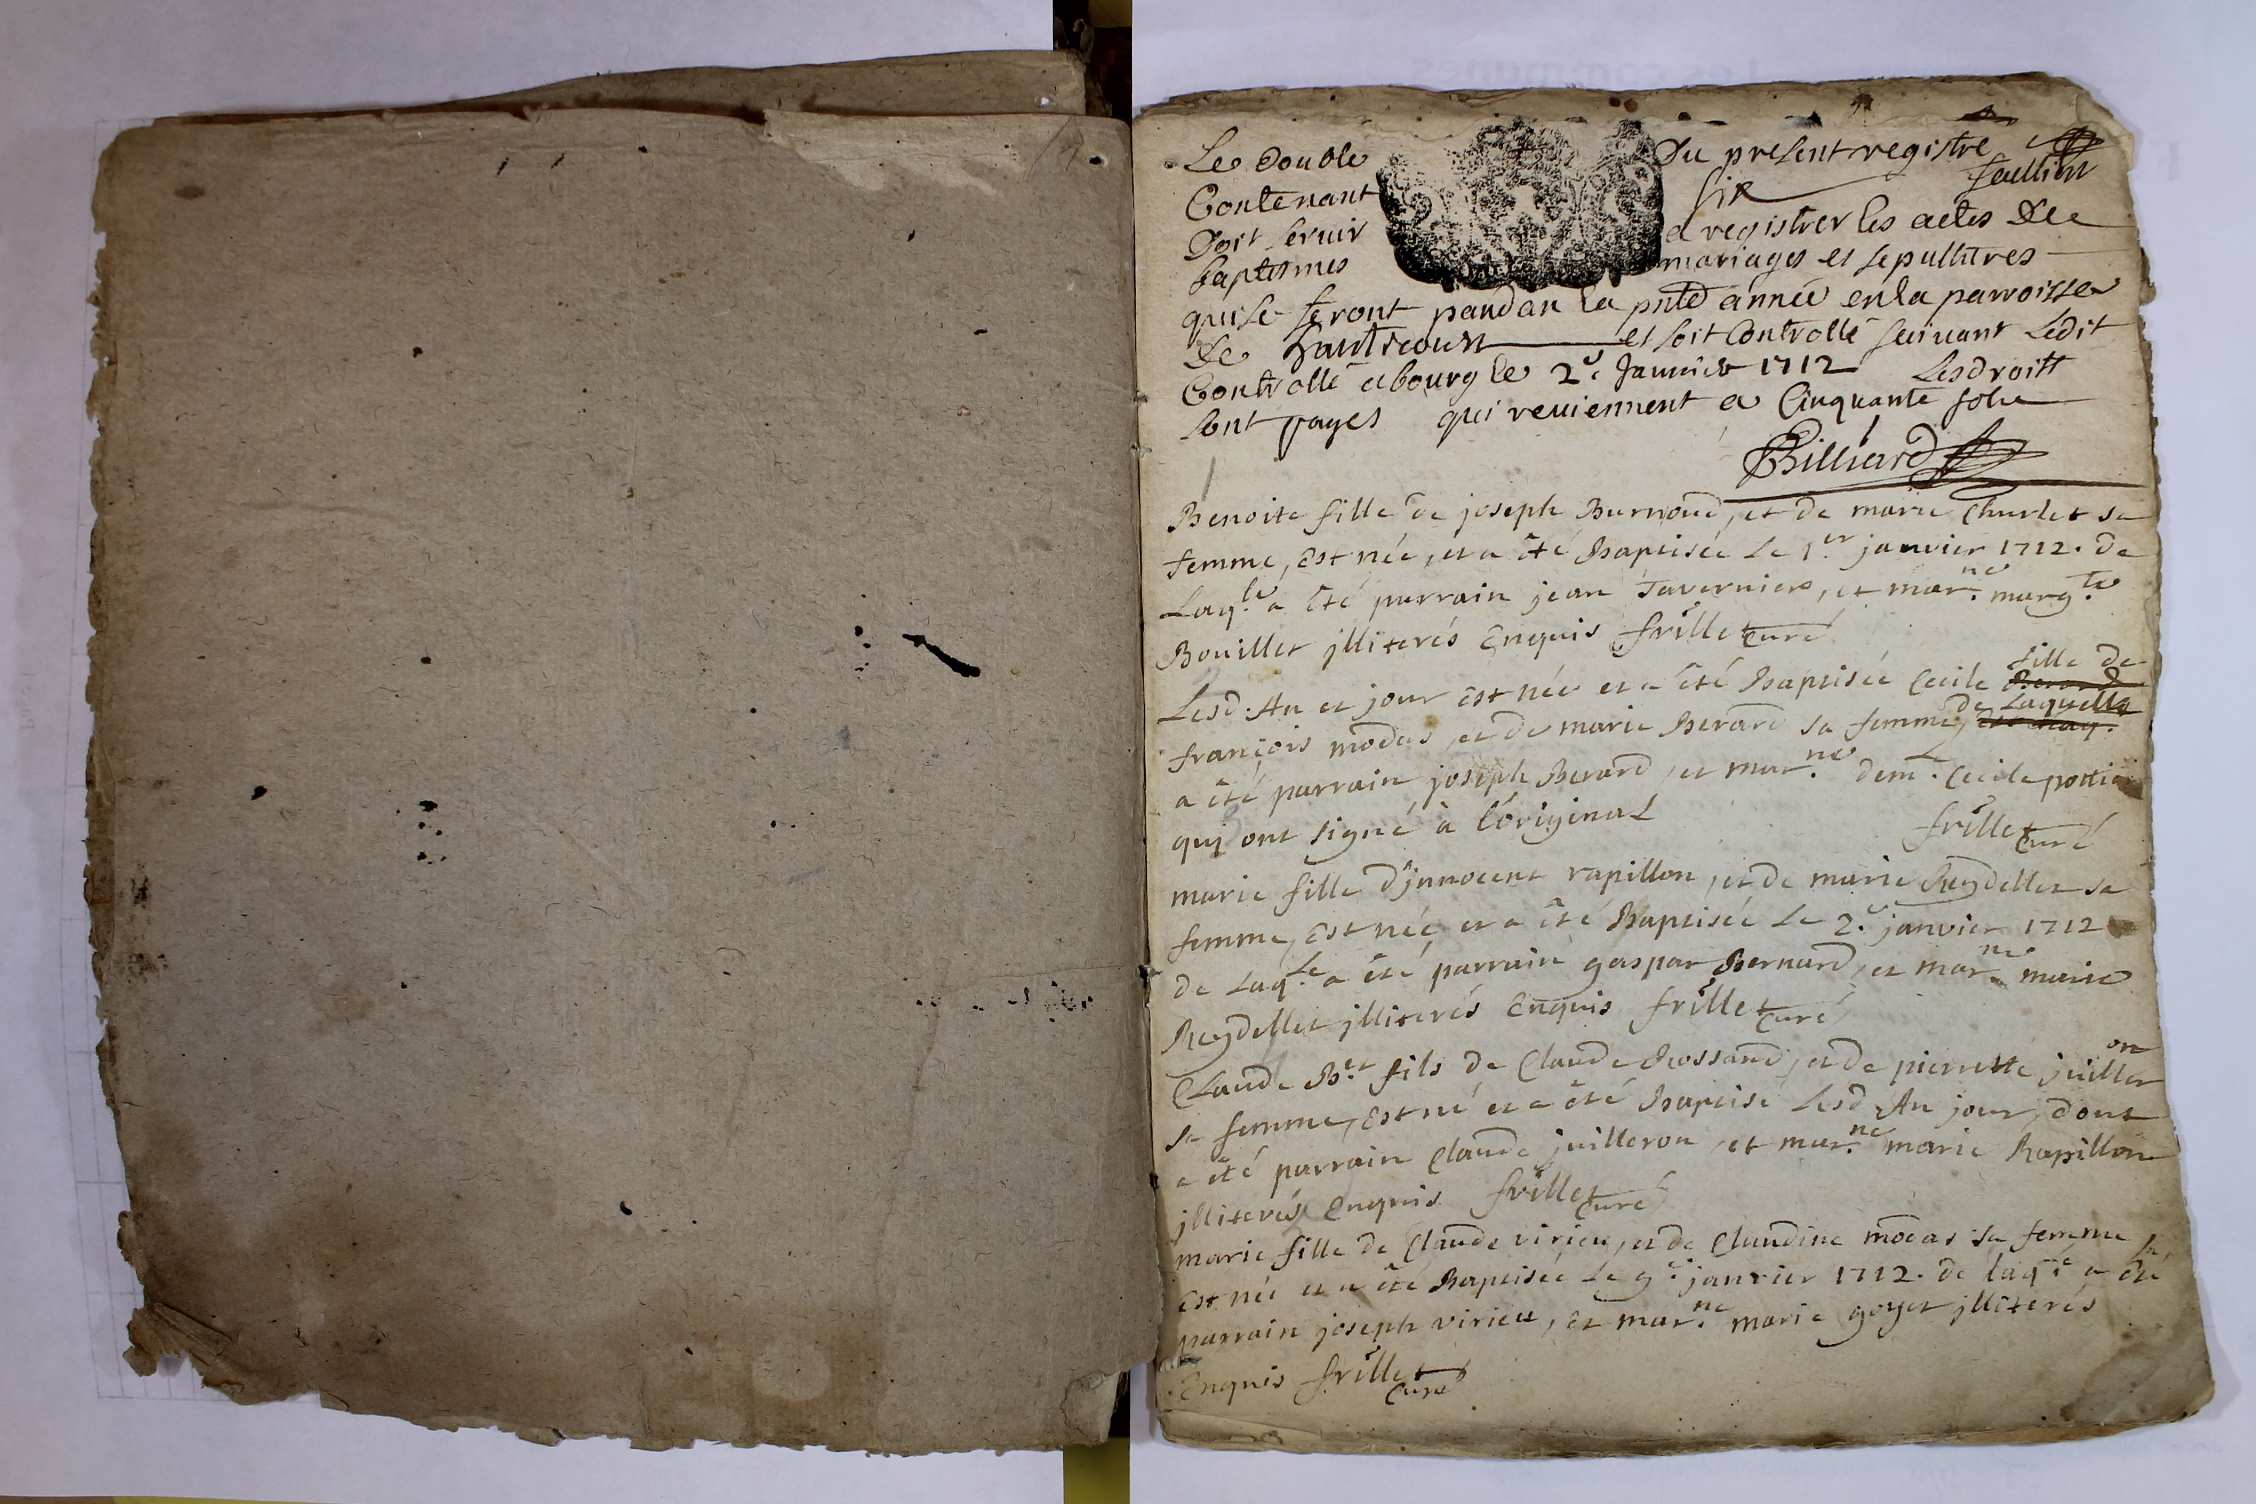 Le Double Du present registre
Contenant six feullietz
Doit servir a registrer les actes De
baptesmes mariages et sepultures
qui se feront pandan la pnte année en la parroisse
De hautecourt et soit Controllé suivant Ledit
Controllé a bourg le 2e Janvier 1712 Les droitt
sont payes qui reviennent a Cinquante sols
Billiard
Benoite fille de joseph Burnoud, et de marie Churlet sa
femme, Est née, et a êté Baptisée Le 1.er janvier 1712. de
Laq.le a êté parrain jean Tavernier, et mar.ne marg.te
Bouillet jlliterés Enquis frillet Curé
Lesd. An et jour est née et a êté Baptisée Cecile fille de
françois modas, et de marie Berard sa femme, de Laquelle
a êté parrain joseph Berard, et mar.ne dem.le Cecile
qui ont signé à l'original frillet Curé
marie fille d'jnnocent rapillon, et de marie Reydellet sa
femme, Est née et a êté Baptisée Le 2.e janvier 1712
de Laq.le a êté parrain gaspar Bernard, et mar.ne marie
Reydellet jlliterés Enquis frillet Curé
Claude B.t fils de Claude Rossand, et de pierrette juilleron
sa femme, Est né et a êté Baptisé Lesd. An jour, dont
a êté parrain Claude juilleron, et mar.ne marie Rapillon
jlliterés Enquis frillet Curé
marie fille de Claude virieu, et de Claudine modas sa femme
Est née et a êté Baptisée Le 9.e janvier 1712. de laq.le a êté
parrain joseph virieu, et mar.ne marie goyet jlliterés
Enquis frillet Curé